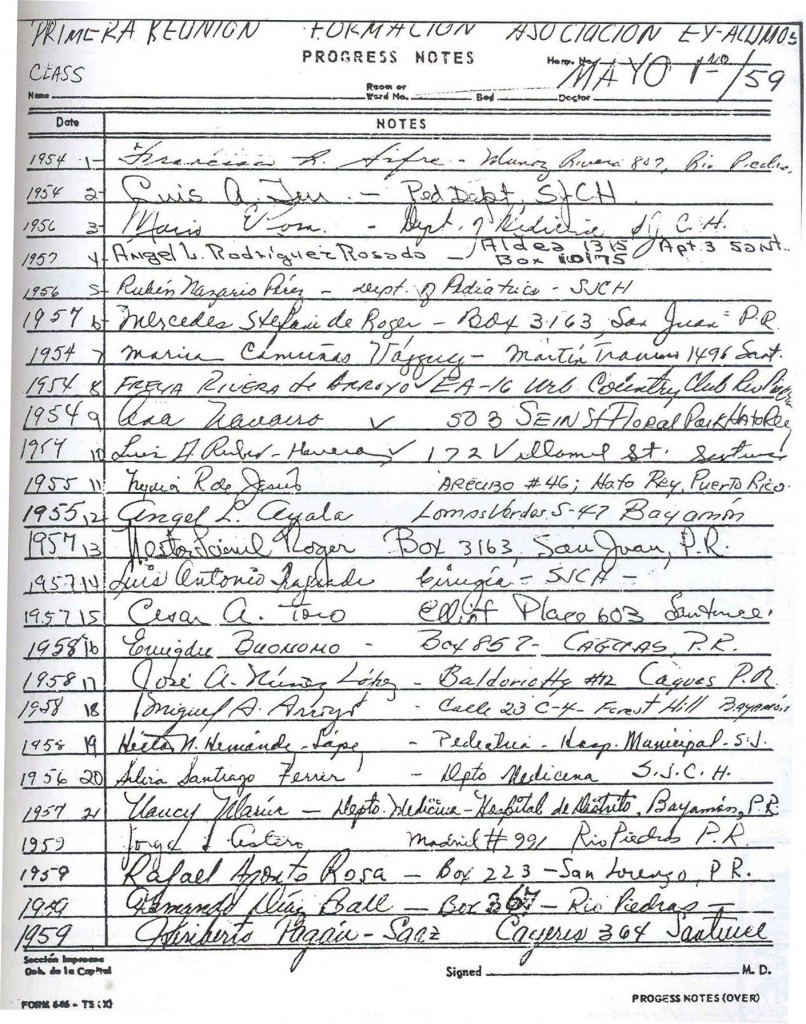 PRIMERA REUNION FORMACION ASOCIACION EX-ALUMOS
PROGRESS NOTES
Hosp. No.
MAYO 1ro/59
CLASS
Name Room or Ward No. Bed Doctor
Date NOTES
1954 1- Francisco R. - Munoz Rivera 807, Rio Piedras
1954 2- Luis A. - Ped Dept, SJCH
1956 3- Mario - Dept. of Medicine S.J.C.H.
1957 4- Angel L. Rodriguez Rosado - Aldea 1315 Apt. 3 Sant.
Box 10175
1956 5- Rubén Nazario Pérez - Dept. of Pediatrics - SJCH
1957 6- Mercedes Stefani de Roger - Box 3163, San Juan P.R.
1954 7 Maria Camuñas Vázquez - Martín Travieso 1496 Sant.
1954 8 FREYA RIVERA de ARROYO ✓ EA-16 Urb. Country Club Rio Piedras
1954 9 Ana Navarro ✓ 503 SEIN St Floral Park Hato Rey
1954 10 Luis A. - Herrera ✓ 172 Villamil St. Santurce
1955 11 Lydia R de Jesús ARECIBO #46; Hato Rey, Puerto Rico.
1955 12 Angel L. Ayala Lomas Verdes S-47 Bayamón
1957 13 Nestor Roger Box 3163, San Juan, P.R.
1957 14 Luis Antonio Cirugía - SJCH -
1957 15 Cesar A. Toro Elliot Place 603 Santurce.
1958 16 Emigdio BUONOMO - Box 857 - CAGUAS, P.R.
1958 17 José A. Núnez López - Baldorioty #12 Caguas P.R.
1958 18 Miguel A. Arroyo - Calle 23 C-4 - Forest Hill Bayamón
1958 19 Hector N. Hernández-López - Pediatria - Hosp. Municipal - S.J.
1956 20 Silvia Santiago Ferrer - Dpto Medicina S.J.C.H.
1957 21 Nancy Marín - Depto. Medicina - Hospital de Distrito, Bayamón, P.R
1959 Jorge L Madrid #991 Rio Piedras P.R.
1959 Rafael Aponte Rosa - Box 223 - San Lorenzo, P.R.
1959 Armando Díaz Ball - Box 367 - Rio Piedras -
1959 Heriberto Pagán - Saez Cayeris 364 Santurce
Sección Imprenta
Gob. de la Capital
Signed M. D.
FORM 646 - TS (X)
PROGESS NOTES (OVER)